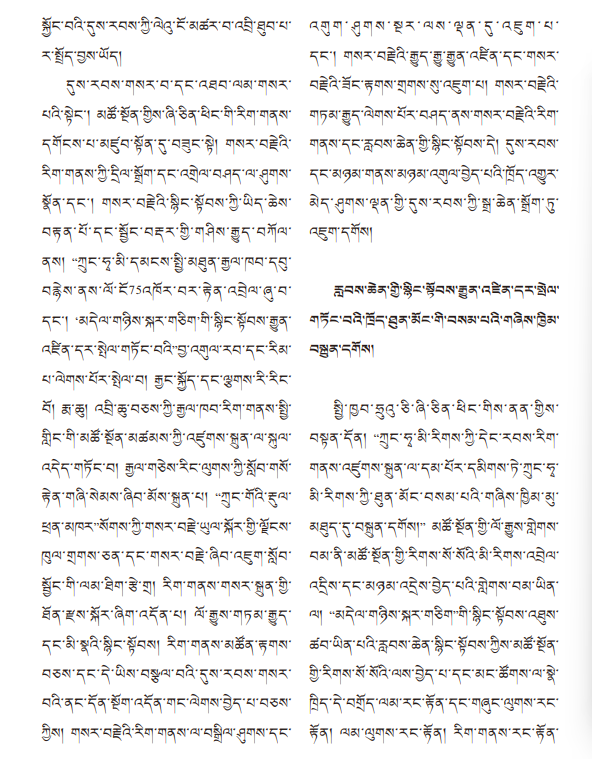 སྐྱོང་བའི་དུས་རབས་ཀྱི་ལེའུ་ངོ་མཚར་བ་འབྲི་ཐུབ་པ་
ར་སྤྲོད་བྱས་ཡོད།
དུས་རབས་གསར་བ་དང་འཐབ་ལམ་གསར་
པའི་སྟེང་། མཚོ་སྔོན་གྱིས་ཞི་ཅིན་ཕིང་གི་རིག་གནས་
དགོངས་པ་མཛུབ་སྟོན་དུ་བཟུང་སྟེ། གསར་བརྗེའི་
རིག་གནས་ཀྱི་དྲིལ་སྒྲོག་དང་འགྲེལ་བཤད་ལ་ཤུགས་
སྣོན་དང་། གསར་བརྗེའི་སྙིང་སྟོབས་ཀྱི་ཡིད་ཆེས་
བརྟན་པོ་དང་སྦྱོང་བརྡར་གྱི་གཤིས་རྒྱུད་བཀོལ་
ནས། “ཀྲུང་ཧྭ་མི་དམངས་སྤྱི་མཐུན་རྒྱལ་ཁབ་དབུ་
བརྙེས་ནས་ལོ་ངོ75འཁོར་བར་རྟེན་འབྲེལ་ཞུ་བ་
དང་། ‘མདེལ་གཉིས་སྐར་གཅིག་གི་སྙིང་སྟོབས་རྒྱུན་
འཛིན་དར་སྤེལ་གཏོང་བའི”བྱ་འགུལ་རབ་དང་རིམ་
པ་ལེགས་པོར་སྤེལ་བ། རྒྱང་སྐྱོད་དང་ལྕགས་རི་རིང་
བོ། རྨ་ཆུ། འབྲི་ཆུ་བཅས་ཀྱི་རྒྱལ་ཁབ་རིག་གནས་སྤྱི་
གླིང་གི་མཚོ་སྔོན་མཚམས་ཀྱི་འཛུགས་སྐྲུན་ལ་སྐུལ་
འདེད་གཏོང་བ། རྒྱལ་གཅེས་རིང་ལུགས་ཀྱི་སློབ་གསོ་
རྟེན་གཞི་སེམས་ཞིབ་མོས་སྐྲུན་པ། “ཀྲུང་གོའི་རྡུལ་
ཕྲན་མཁར”སོགས་ཀྱི་གསར་བརྗེ་ཡུལ་སྐོར་གྱི་ལྗོངས་
ཁུལ་གྲགས་ཅན་དང་གསར་བརྗེ་ཞིབ་འཇུག་སློབ་
སྦྱོང་གི་ལམ་ཐིག་རྩེ་གྲ། རིག་གནས་གསར་སྐྲུན་གྱི་
ཐོན་རྫས་སྐོར་ཞིག་འདོན་པ། ལོ་རྒྱུས་གཏམ་རྒྱུད་
དང་མི་སྣའི་སྙིང་སྟོབས། རིག་གནས་མཚོན་རྟགས་
བཅས་དང་དེ་ཡིས་བསྩལ་བའི་དུས་རབས་གསར་
བའི་ནང་དོན་སྔོག་འདོན་གང་ལེགས་བྱེད་པ་བཅས་
ཀྱིས། གསར་བརྗེའི་རིག་གནས་ལ་བསྒྲིལ་ཤུགས་དང་
འགུག་ཤུགས་སྔར་ལས་ལྡན་དུ་འཇུག་པ་
དང་། གསར་བརྗེའི་རྒྱུད་རྒྱུ་རྒྱུན་འཛིན་དང་གསར་
བརྗེའི་ཐོང་རྟགས་གྲགས་སུ་འཇུག་པ། གསར་བརྗེའི་
གཏམ་རྒྱུད་ལེགས་པོར་བཤད་ནས་གསར་བརྗེའི་རིག་
གནས་དང་རླབས་ཆེན་གྱི་སྙིང་སྟོབས་དེ། དུས་རབས་
དང་མཉམ་གནས་མཉམ་འགུལ་བྱེད་པའི་ཁྲོད་འགྱུར་
མེད་ཤུགས་ལྡན་གྱི་དུས་རབས་ཀྱི་སྒྲ་ཆེན་སྒྲོག་ཏུ་
འཇུག་དགོས།
རླབས་ཆེན་གྱི་སྙིང་སྟོབས་རྒྱུན་འཛིན་དར་སྤེལ་
གཏོང་བའི་ཁྲོད་ཐུན་མོང་གི་བསམ་པའི་གཞིས་ཁྱིམ་
བསྐྲུན་དགོས།
སྤྱི་ཁྱབ་ཧྲུའུ་ཅི་ཞི་ཅིན་ཕིང་གིས་ནན་གྱིས་
བསྟན་དོན། “ཀྲུང་ཧྭ་མི་རིགས་ཀྱི་དེང་རབས་རིག་
གནས་འཛུགས་སྐྲུན་ལ་དམ་པོར་དམིགས་ཏེ་ཀྲུང་ཧྭ་
མི་རིགས་ཀྱི་ཐུན་མོང་བསམ་པའི་གཞིས་ཁྱིམ་མུ་
མཐུད་དུ་བསྐྲུན་དགོས།” མཚོ་སྔོན་གྱི་ལོ་རྒྱུས་གླེགས་
བམ་ནི་མཚོ་སྔོན་གྱི་རིགས་སོ་སོའི་མི་རིགས་འབྲེལ་
འདྲིས་དང་མཉམ་འདྲེས་བྱེད་པའི་གླེགས་བམ་ཡིན་
ལ། “མདེལ་གཉིས་སྐར་གཅིག”གི་སྙིང་སྟོབས་འཐུས་
ཚབ་ཡིན་པའི་རླབས་ཆེན་སྙིང་སྟོབས་ཀྱིས་མཚོ་སྔོན་
གྱི་རིགས་སོ་སོའི་ལས་བྱེད་པ་དང་མང་ཚོགས་ལ་སྣེ་
ཁྲིད་དེ་བགྲོད་ལམ་རང་རྟོན་དང་གཞུང་ལུགས་རང་
རྟོན། ལམ་ལུགས་རང་རྟོན། རིག་གནས་རང་རྟོན་